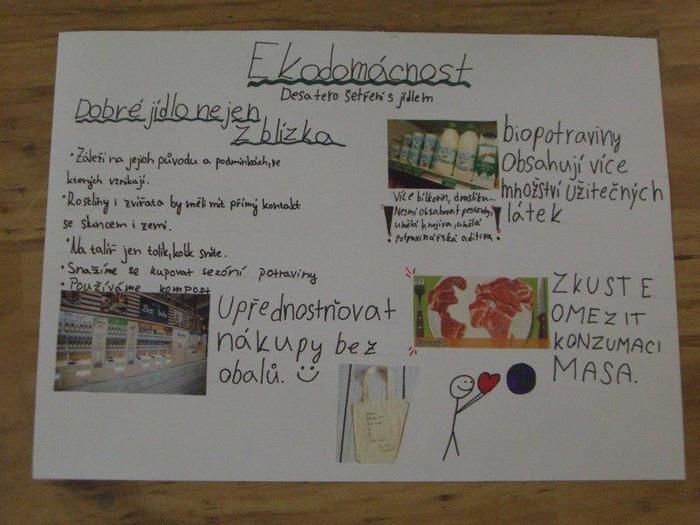 Ekodomácnost
Desatero šetření s jídlem
Dobré jídlo nejen
z blízka
• Záleží na jejich původu a podmínkách, ve
kterých vznikají.
• Rostliny i zvířata by měli mít přímý kontakt
se sluncem i zemí.
• Na talíř jen tolik, kolik sníte.
• Snažíme se kupovat sezóní potraviny
• Používáme kompost
biopotraviny
Obsahují více
množství užitečných
látek
Více bílkovin, draslíku...
Nesmí obsahovat pesticidy,
umělá hnojiva, umělá
potravinářská aditiva
Upřednostňovat
nákupy bez
obalů.
ZKUSTE
OMEZIT
KONZUMACI
MASA.